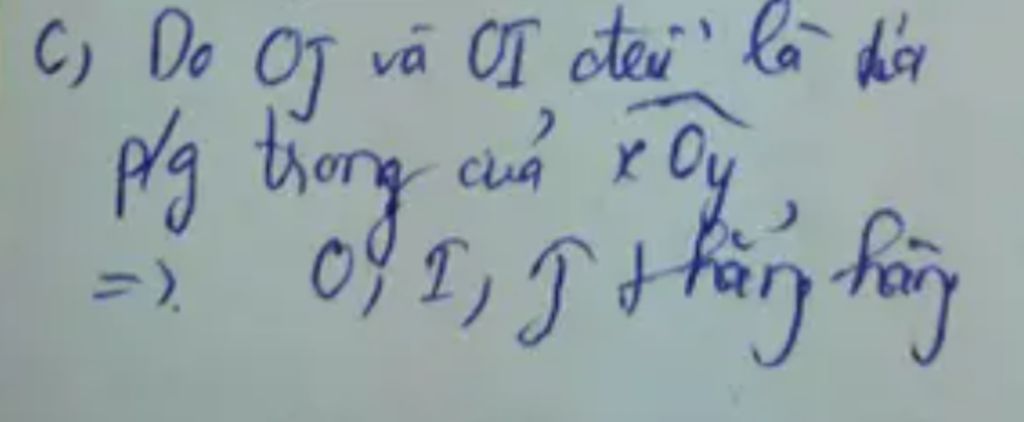 c, Do OJ và OI đều là tia
p/g trong của xOy
=> O, I, J thẳng hàng